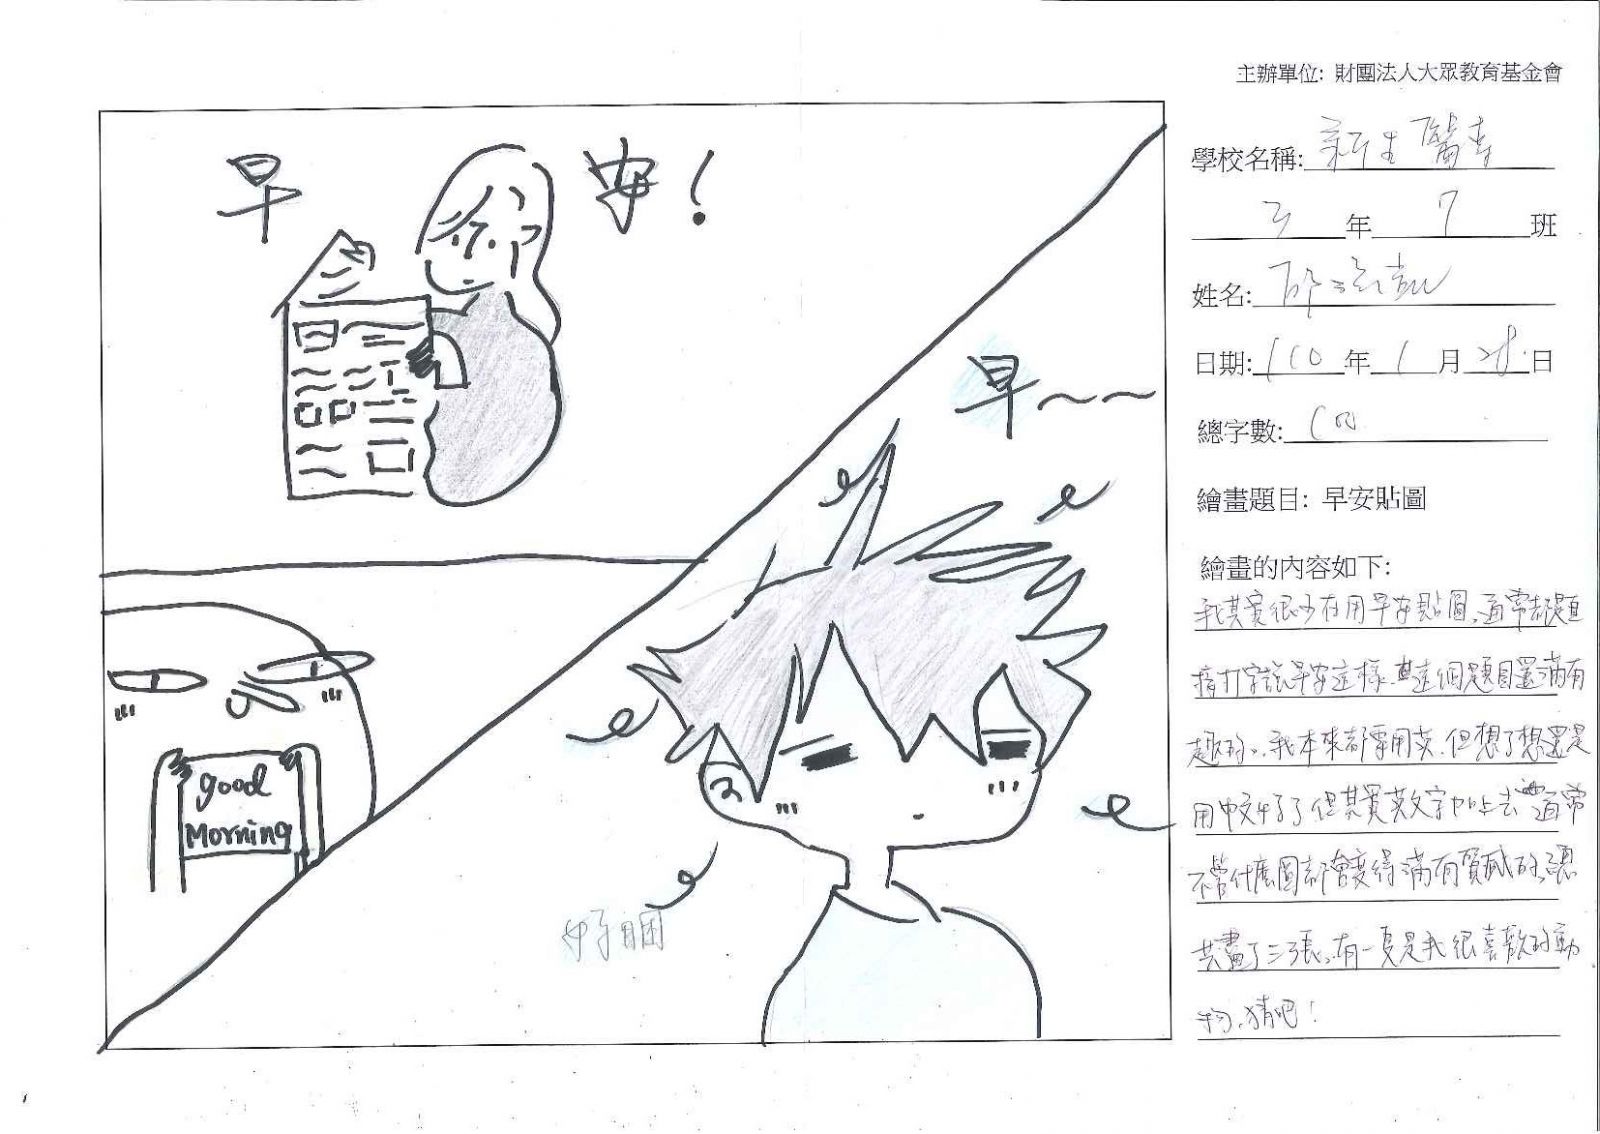 主辦單位: 財團法人大眾教育基金會
早 安！
學校名稱: 新生醫專
3 年 7 班
姓名:
日期: 110 年 1 月 28 日
總字數: 100
繪畫題目: 早安貼圖
繪畫的內容如下:
我其實很少在用早安貼圖，通常都是直
接打字說早安這樣，這個題目還滿有
趣的，我本來都要用英，但想了想還是
用中文好了，但其實英文字加上去通常
不管什麼圖都會變得滿有質感的，總
共畫了三張，有一隻是我很喜歡的動
物，猜吧！
早～～
good
Morning
好睏